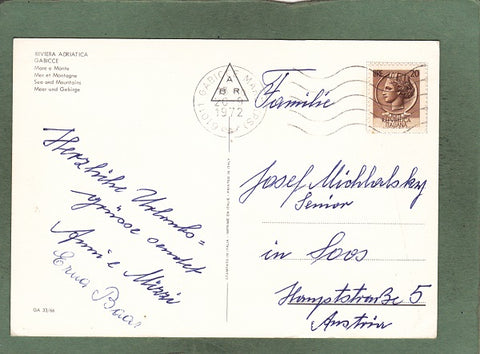 RIVIERA ADRIATICA
GABICCE
Mare e Monte
Mer et Montagne
Sea and Mountains
Meer und Gebirge
Herzliche Urlaubs=
grüsse sendet
Anni e Mizzi
Erna
GA 33/66
61011 GABICCE MARE (PS)
A
B R
1972
20
Familie
Josef Michlalsky
Senior
in Soos
Hauptstraße 5
Austria